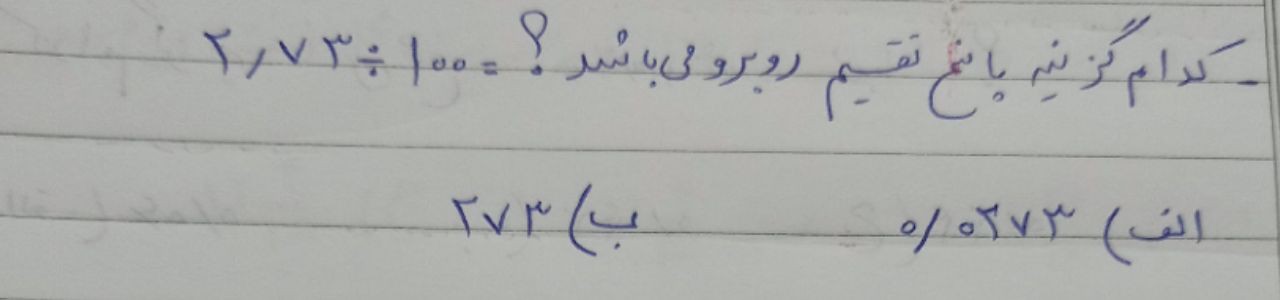 - کدام گزینه پاسخ تقسیم روبرو می‌باشد؟ = ۲٫۷۳ ÷ ۱۰۰
الف) ۰/۰۲۷۳ ب) ۲۷۳